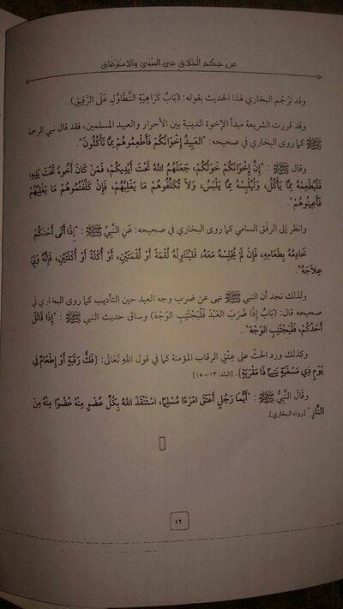 من حكم الخلاق في السبي والاسترقاق
وقد ترجم البخاري لهذا الحديث بقوله: (بَابُ كَرَاهِيَةِ التَّطَاوُلِ عَلَى الرَّقِيقِ).
وقد قررت الشريعة مبدأ الإخوة الدينية بين الأحرار والعبيد المسلمين، فقد قال نبي الرحمة
ﷺ كما روى البخاري في صحيحه: "الْعَبِيدُ إِخْوَانُكُمْ فَأَطْعِمُوهُمْ مِمَّا تَأْكُلُونَ".
وقال ﷺ: "إِنَّ إِخْوَانَكُمْ خَوَلُكُمْ، جَعَلَهُمُ اللهُ تَحْتَ أَيْدِيكُمْ، فَمَنْ كَانَ أَخُوهُ تَحْتَ يَدِهِ،
فَلْيُطْعِمْهُ مِمَّا يَأْكُلُ، وَلْيُلْبِسْهُ مِمَّا يَلْبَسُ، وَلاَ تُكَلِّفُوهُمْ مَا يَغْلِبُهُمْ، فَإِنْ كَلَّفْتُمُوهُمْ مَا يَغْلِبُهُمْ
فَأَعِينُوهُمْ".
وانظر إلى الرفق السامي كما روى البخاري في صحيحه: عَنِ النَّبِيِّ ﷺ: "إِذَا أَتَى أَحَدَكُمْ
خَادِمُهُ بِطَعَامِهِ، فَإِنْ لَمْ يُجْلِسْهُ مَعَهُ، فَلْيُنَاوِلْهُ لُقْمَةً أَوْ لُقْمَتَيْنِ، أَوْ أُكْلَةً أَوْ أُكْلَتَيْنِ، فَإِنَّهُ وَلِيَ
عِلاَجَهُ".
ولذلك نجد أن النبي ﷺ نهى عن ضرب وجه العبد حين التأديب كما روى البخاري في
صحيحه قال: (بَابُ إِذَا ضَرَبَ العَبْدَ فَلْيَجْتَنِبِ الوَجْهَ) وساق حديث النبي ﷺ: "إِذَا قَاتَلَ
أَحَدُكُمْ، فَلْيَجْتَنِبِ الوَجْهَ".
وكذلك ورد الحثّ على عتق الرقاب المؤمنة كما في قول الله تعالى: (فَكُّ رَقَبَةٍ أَوْ إِطْعَامٌ فِي
يَوْمٍ ذِي مَسْغَبَةٍ يَتِيمًا ذَا مَقْرَبَةٍ). [البلد: ١٣-١٥]
وقَالَ النَّبِيُّ ﷺ: "أَيُّمَا رَجُلٍ أَعْتَقَ امْرَءًا مُسْلِمًا، اسْتَنْقَذَ اللهُ بِكُلِّ عُضْوٍ مِنْهُ عُضْوًا مِنْهُ مِنَ
النَّارِ" [رواه البخاري].
١٢